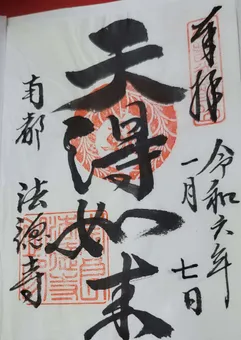 奉拝
令和六年
一月七日
天得如来
南都
法徳寺